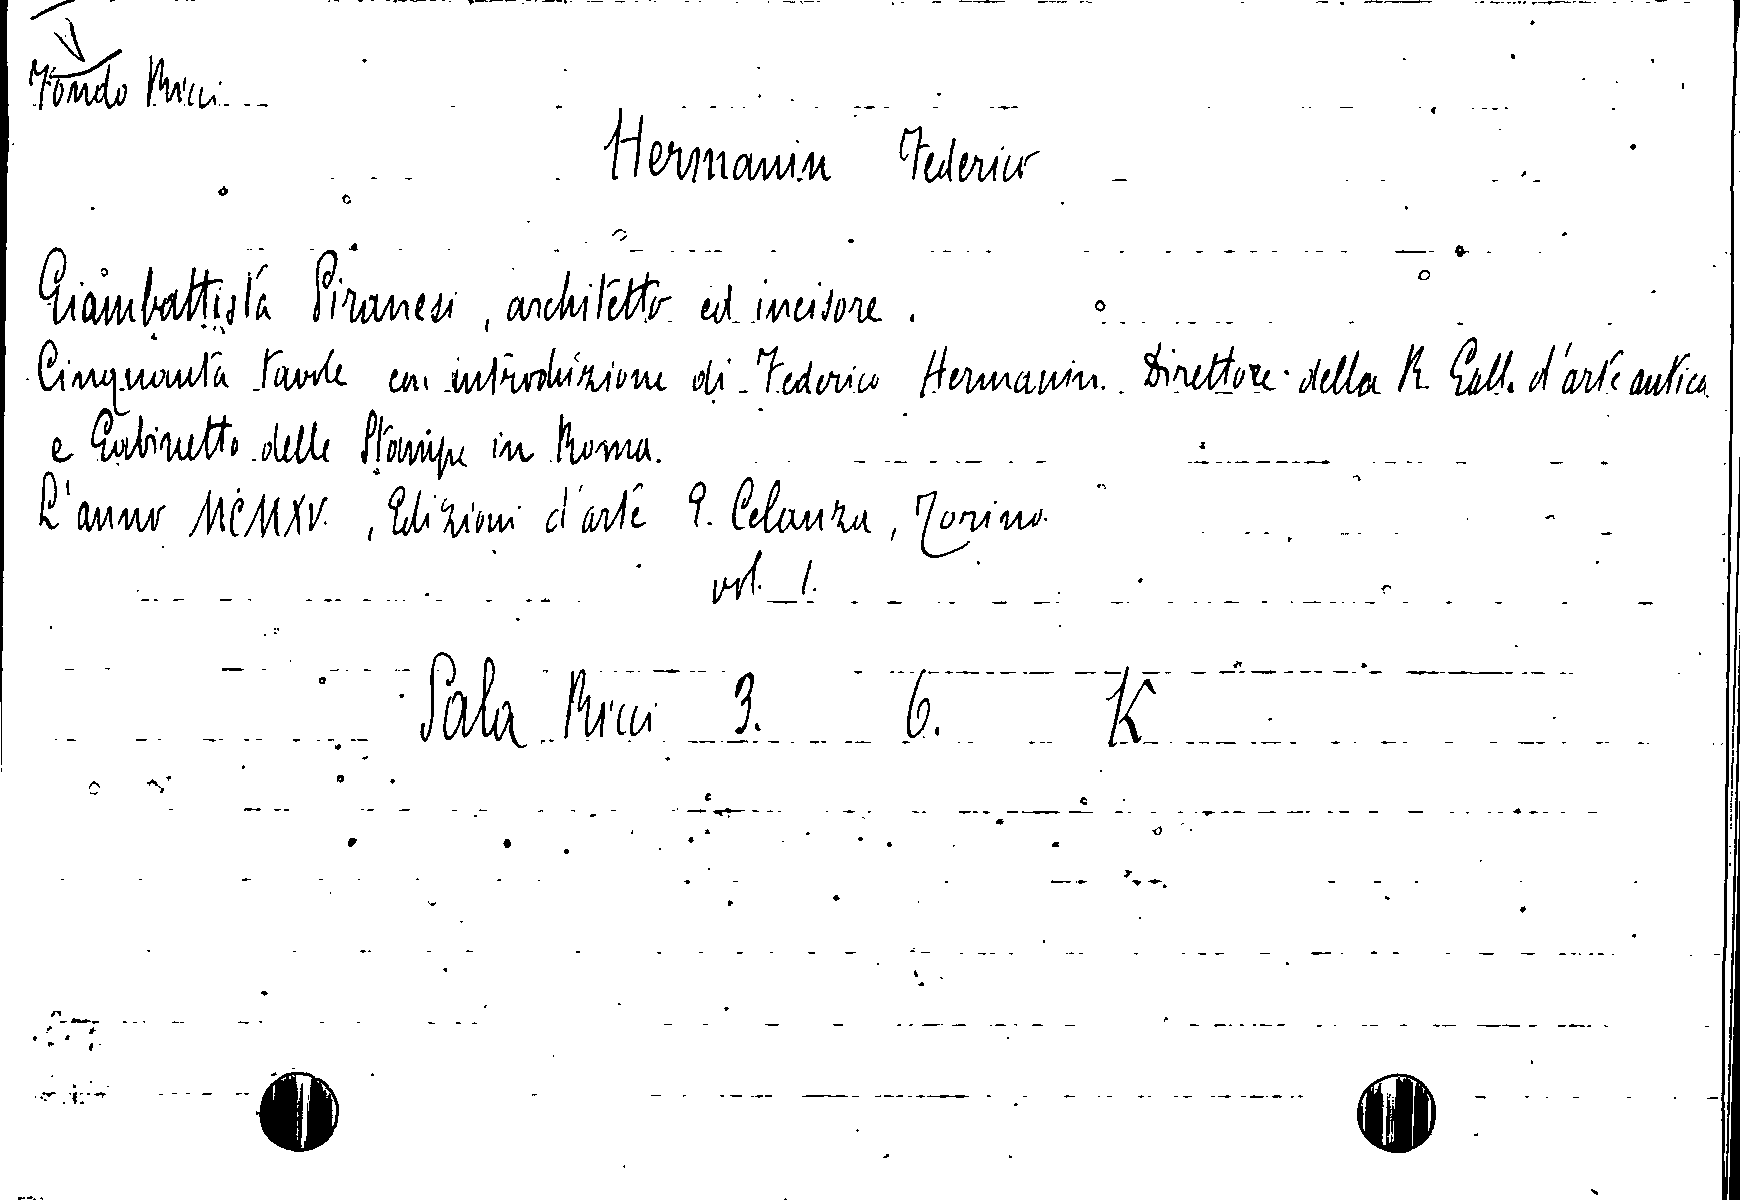 Fondo Ricci
Hermanin Federico
Giambattista Piranesi, architetto ed incisore.
Cinquanta tavole con introduzione di Federico Hermanin. Direttore della R. Gall. d'arte antica
e Gabinetto delle Stampe in Roma.
L'anno MCMXV., Edizioni d'arte E. Celanza, Torino.
vol. 1.
Sala Ricci 3. 6. K